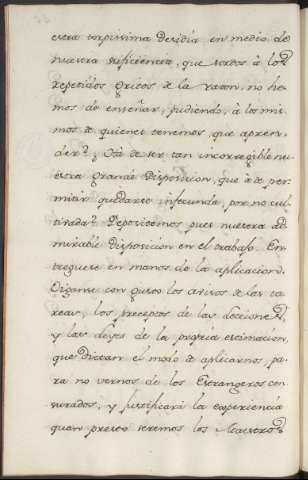 esta torpissima Desidia en medio de
nuestra suficiencia, que sordos à los
repetidos gritos de la razon, no he
mos de enseñar, pudiendo, à los mis
mos de quienes tenemos, que apren
der? Ha de ser tan incorregible nu
estra grande Disposicion, que à de per
mitir quedarse infecunda, por no cul
tivada? Depositemos pues nuestra ad
mirable disposicion en el trabajo. En
treguese en manos de la aplicacion.
Oiganse con gusto los avisos de las ta
reas, los preceptos de las lecciones,
y las Leyes de la propria estimacion,
que Dictan el modo de aplicarnos pa
ra no vernos de los Estrangeros cen
surados, y justificarà la experiencia
quan presto seremos los Maestros